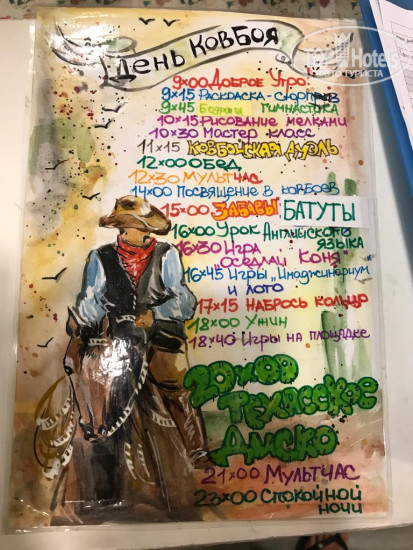 День Ковбоя
9×00 Доброе Утро!
9×15 Раскраска-сюрприз
9×45 Бодрая гимнастика
10×15 Рисование мелками
10×30 Мастер класс
11×15 Ковбойская дуэль
12×00 Обед
12×30 Мультчас
14×00 Посвящение в ковбоев
15×00 Забавы БАТУТЫ
16×00 Урок Английского
языка
16×30 Игра
"Оседлай коня"
16×45 Игры "Имаджинариум
и лото
17×15 Набрось кольцо
18×00 Ужин
18×40 Игры на площадке
20×00
Техасское
Диско
21×00 Мультчас
23×00 Спокойной
ночи